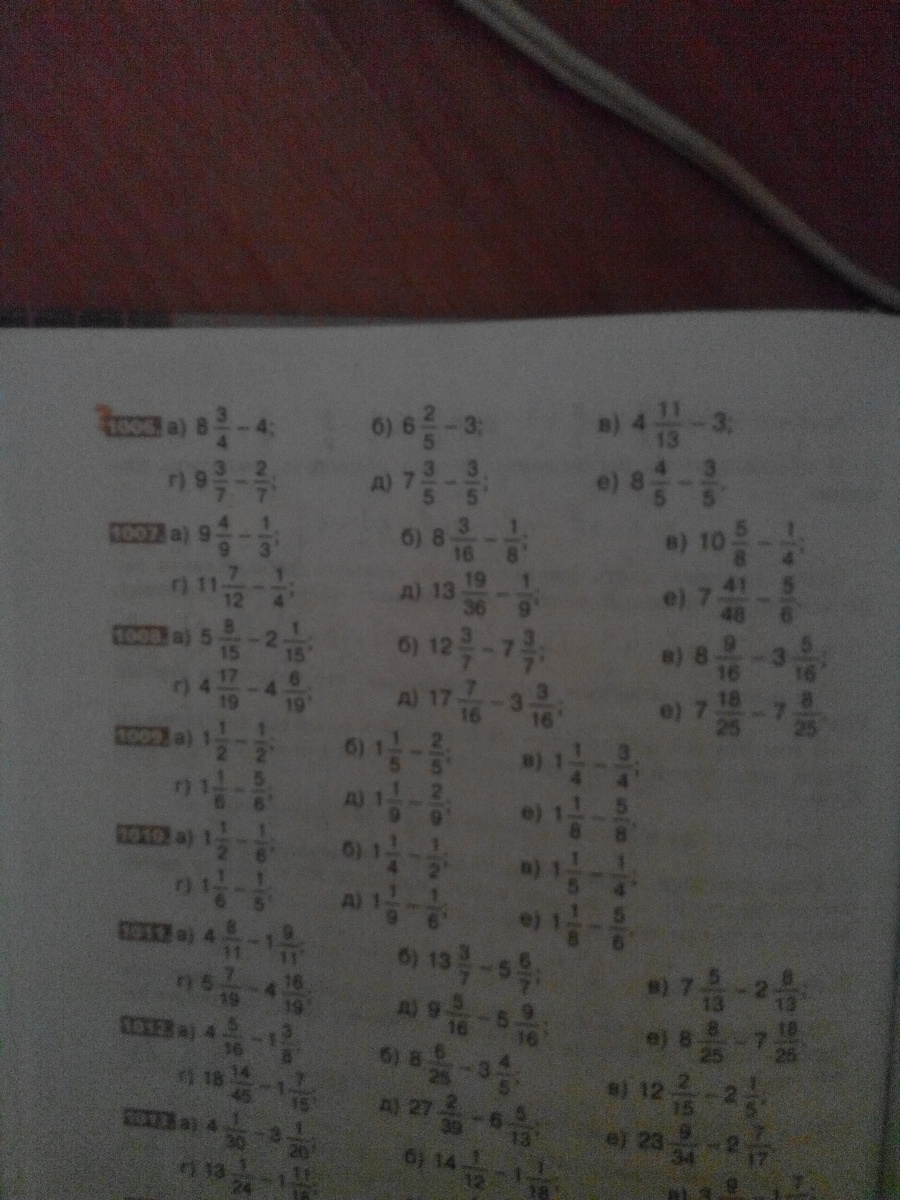 1006. а) 8 3/4 − 4; б) 6 2/5 − 3; в) 4 11/13 − 3;
г) 9 3/7 − 2/7; д) 7 3/5 − 3/5; е) 8 4/5 − 3/5.
1007. а) 9 4/9 − 1/3; б) 8 3/16 − 1/8; в) 10 5/8 − 1/4;
г) 11 7/12 − 1/4; д) 13 19/36 − 1/9; е) 7 41/48 − 5/6.
1008. а) 5 8/15 − 2 1/15; б) 12 3/7 − 7 3/7; в) 8 9/16 − 3 5/16;
г) 4 17/19 − 4 6/19; д) 17 7/16 − 3 3/16; е) 7 18/25 − 7 8/25.
1009. а) 1 1/2 − 1/2; б) 1 1/5 − 2/5; в) 1 1/4 − 3/4;
г) 1 1/6 − 5/6; д) 1 1/9 − 2/9; е) 1 1/8 − 5/8.
1010. а) 1 1/2 − 1/6; б) 1 1/4 − 1/2; в) 1 1/5 − 1/4;
г) 1 1/6 − 1/5; д) 1 1/9 − 1/6; е) 1 1/8 − 5/6.
1011. а) 4 8/11 − 1 9/11; б) 13 3/7 − 5 6/7; в) 7 5/13 − 2 8/13;
г) 5 7/19 − 4 16/19; д) 9 5/16 − 5 9/16; е) 8 8/25 − 7 18/25.
1012. а) 4 5/16 − 1 3/8; б) 8 6/25 − 3 4/5; в) 12 2/15 − 2 1/5;
г) 18 14/45 − 1 7/15; д) 27 2/39 − 6 5/13; е) 23 9/34 − 2 7/17.
1013. а) 4 1/30 − 3 1/20; б) 14 1/12 − 1 1/18;
г) 13 1/24